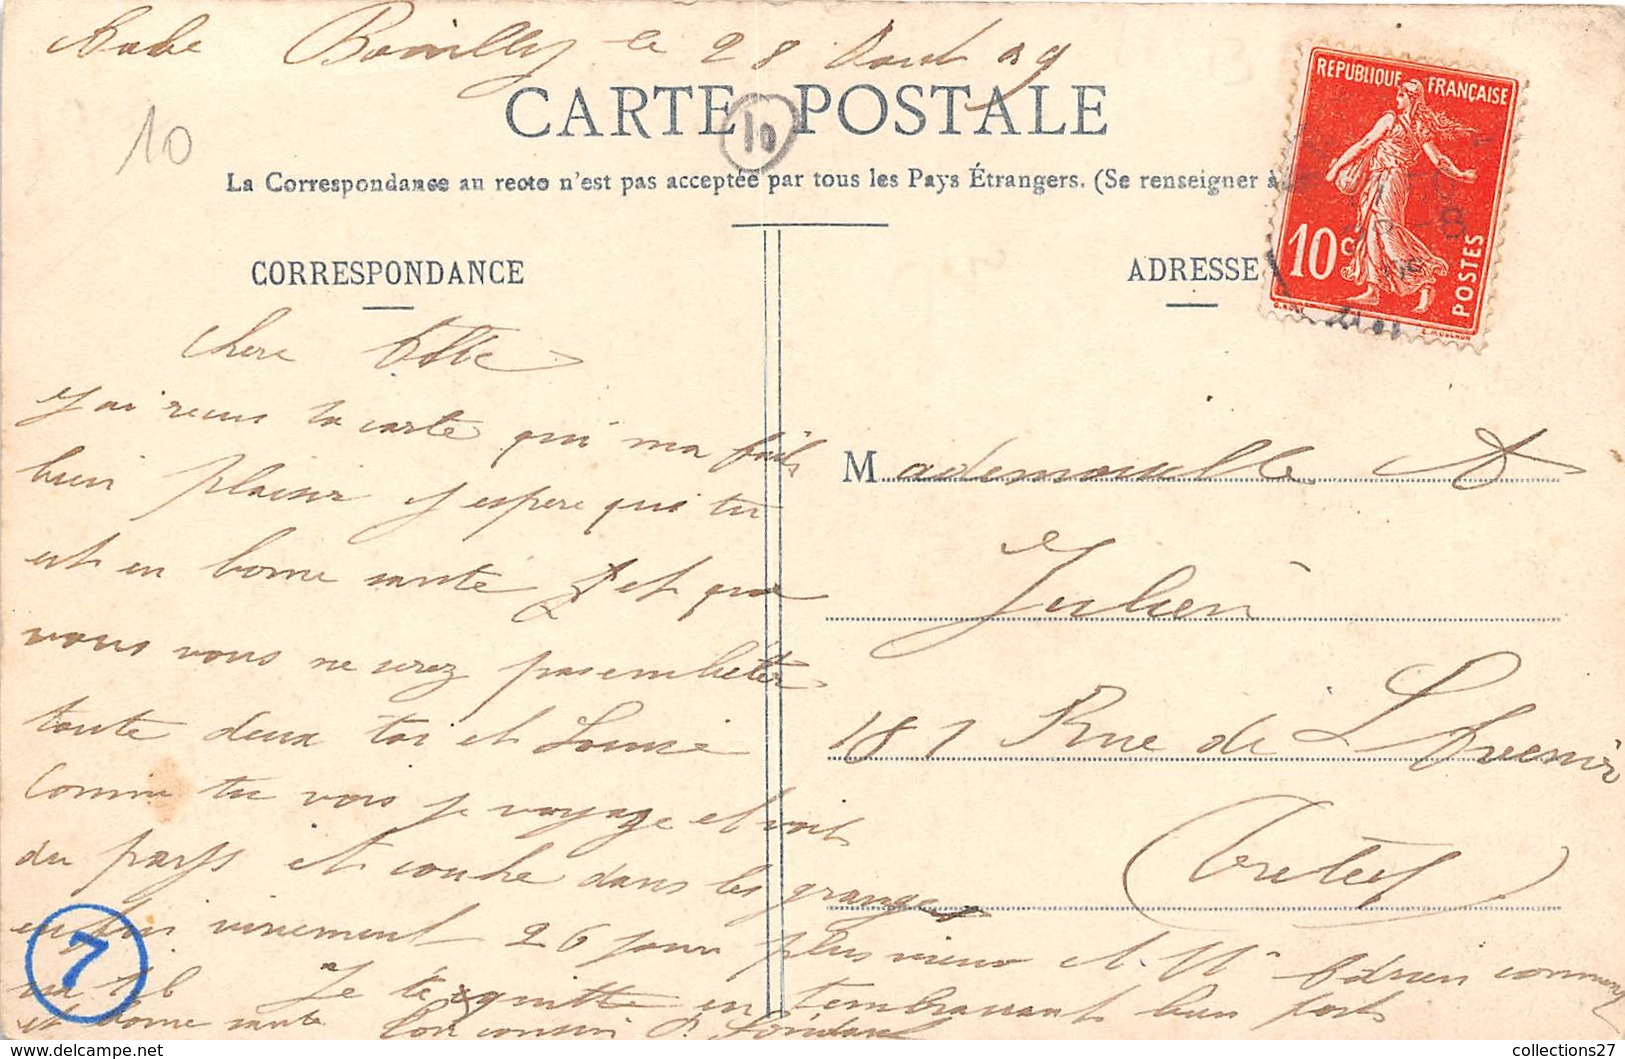 Aube Bouilly le 28 Aout 09
10
CARTE POSTALE
10
La Correspondance au recto n'est pas acceptée par tous les Pays Étrangers. (Se renseigner à
REPUBLIQUE FRANÇAISE
10c
POSTES
CORRESPONDANCE
ADRESSE
chere
J'ai recus ta carte qui ma fait
bien plaisir J'espere que tu
est en bonne santé et que
vous vous ne serez pas embeter
toute deux toi et Louise
Comme tu vois je voyage et voit
du pays et couche dans les granges
vivement 26 jours plus vieux et Adrien
Je te quitte en t'embrassant bien fort
et bonne sante Ton cousin
7
Mademoiselle A
Julien
187 Rue de L'Avenir
Creteil
collections27